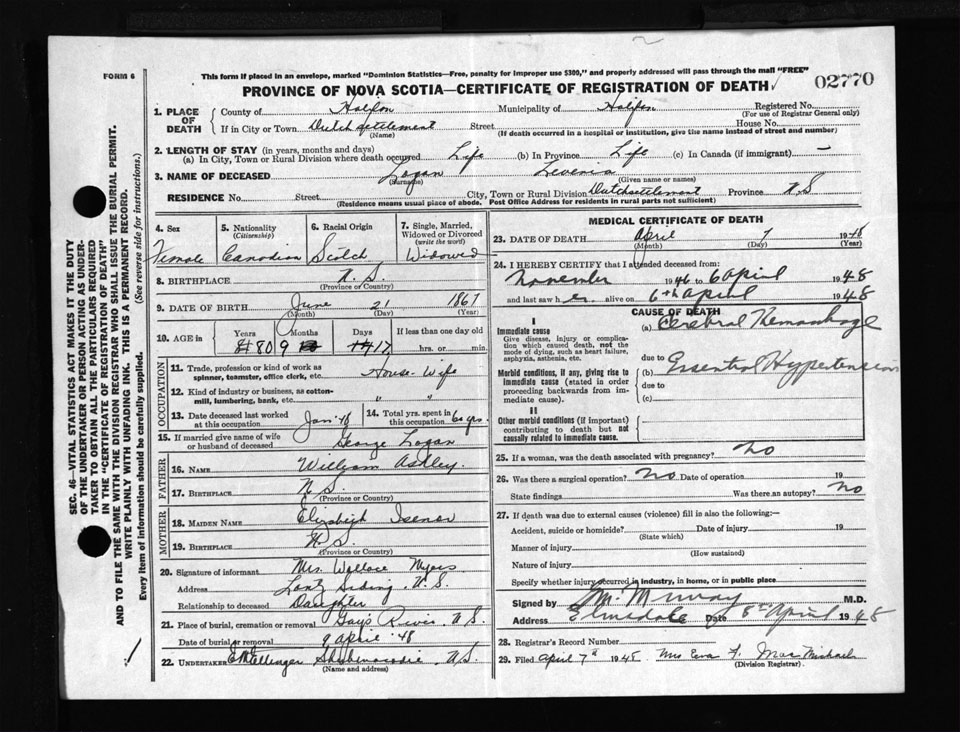 FORM 6
This form if placed in an envelope, marked "Dominion Statistics—Free, penalty for improper use $300," and properly addressed will pass through the mail "FREE"
PROVINCE OF NOVA SCOTIA—CERTIFICATE OF REGISTRATION OF DEATH
02770
1. PLACE OF DEATH
County of Halifax Municipality of Halifax Registered No.
(For use of Registrar General only)
If in City or Town Dutch settlement Street House No.
(Name) (If death occurred in a hospital or institution, give the name instead of street and number)
2. LENGTH OF STAY (in years, months and days)
(a) In City, Town or Rural Division where death occurred Life (b) In Province Life (c) In Canada (if immigrant) —
3. NAME OF DECEASED Logan Levenia
(Surname) (Given name or names)
RESIDENCE No. Street City, Town or Rural Division Dutchsettlement Province N.S
(Residence means usual place of abode. Post Office Address for residents in rural parts not sufficient)
4. Sex 5. Nationality (Citizenship) 6. Racial Origin 7. Single, Married, Widowed or Divorced (write the word)
Female Canadian Scotch Widowed
8. BIRTHPLACE N.S.
(Province or Country)
9. DATE OF BIRTH June 21 1867
(Month) (Day) (Year)
10. AGE in Years Months Days If less than one day old
81 80 9 10 14 17 hrs. or min.
OCCUPATION
11. Trade, profession or kind of work as spinner, teamster, office clerk, etc. House-Wife
12. Kind of industry or business, as cotton-mill, lumbering, bank, etc. " "
13. Date deceased last worked at this occupation Jan '48 14. Total yrs. spent in this occupation 60 yrs.
15. If married give name of wife or husband of deceased George Logan
FATHER
16. NAME William Ashley.
17. BIRTHPLACE N.S.
(Province or Country)
MOTHER
18. MAIDEN NAME Elizabeth Isenor
19. BIRTHPLACE N.S.
(Province or Country)
20. Signature of informant Mrs. Wallace Myers
Address Lantz Siding, N.S.
Relationship to deceased Daughter
21. Place of burial, cremation or removal Gays River, N.S.
Date of burial or removal 9 april '48
22. UNDERTAKER E M Ettinger Shubenacadie N.S.
(Name and address)
MEDICAL CERTIFICATE OF DEATH
23. DATE OF DEATH April 7 1948
(Month) (Day) (Year)
24. I HEREBY CERTIFY that I attended deceased from:
November 1946 to 6 april 1948
and last saw her alive on 6th april 1948
CAUSE OF DEATH
I
Immediate cause (a) Cerebral Hemorrhage
Give disease, injury or complication which caused death, not the mode of dying, such as heart failure, asphyxia, asthenia, etc.
due to
Morbid conditions, if any, giving rise to immediate cause (stated in order proceeding backwards from immediate cause).
(b) Essential Hypertension
due to
(c)
II
Other morbid conditions (if important) contributing to death but not causally related to immediate cause.
25. If a woman, was the death associated with pregnancy? No
26. Was there a surgical operation? No Date of operation 19
State findings Was there an autopsy? No
27. If death was due to external causes (violence) fill in also the following:—
Accident, suicide or homicide? Date of injury 19
(State which)
Manner of injury
(How sustained)
Nature of injury
Specify whether injury occurred in industry, in home, or in public place
Signed by Murray M.D.
Address Elmsdale Date 8th April 1948
28. Registrar's Record Number
29. Filed April 7th 1948 Mrs Eva F. MacMichael
(Division Registrar).
SEC. 46—VITAL STATISTICS ACT MAKES IT THE DUTY OF THE UNDERTAKER OR PERSON ACTING AS UNDERTAKER TO OBTAIN ALL THE PARTICULARS REQUIRED IN THE "CERTIFICATE OF REGISTRATION OF DEATH" AND TO FILE THE SAME WITH THE DIVISION REGISTRAR WHO SHALL ISSUE THE BURIAL PERMIT.
WRITE PLAINLY WITH UNFADING INK. THIS IS A PERMANENT RECORD.
Every item of information should be carefully supplied. (See reverse side for instructions.)